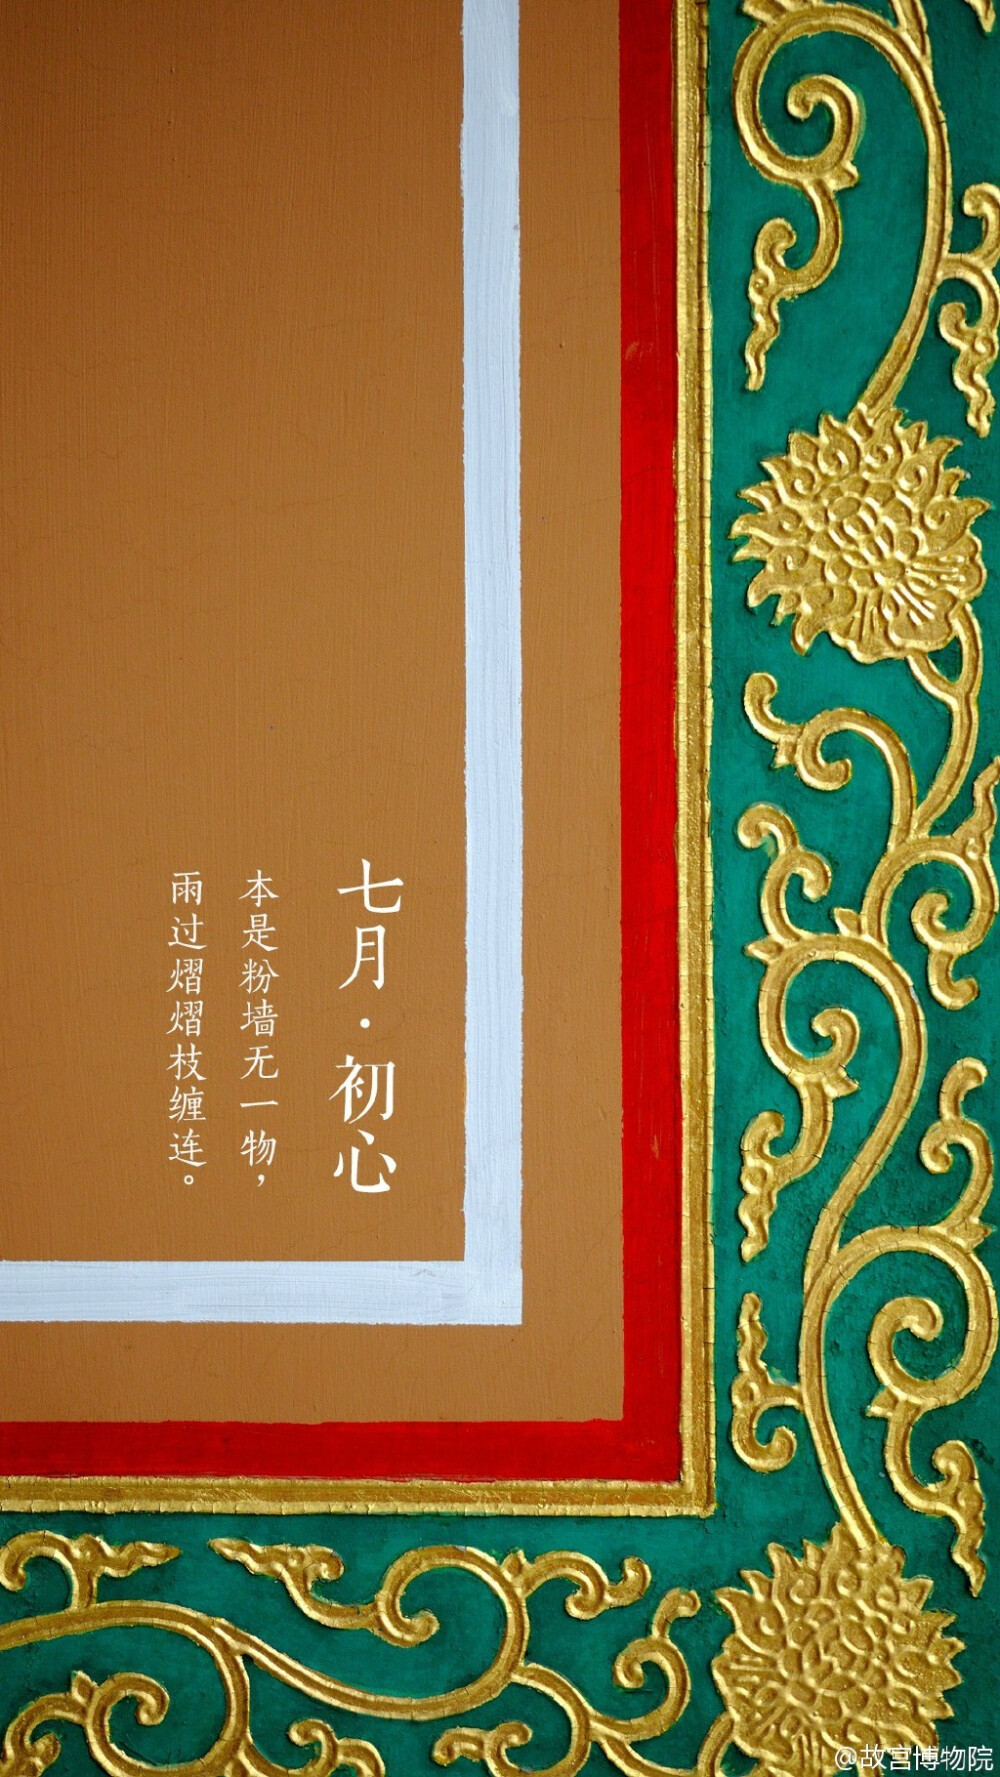 七月·初心
本是粉墙无一物，
雨过熠熠枝缠连。
@故宫博物院